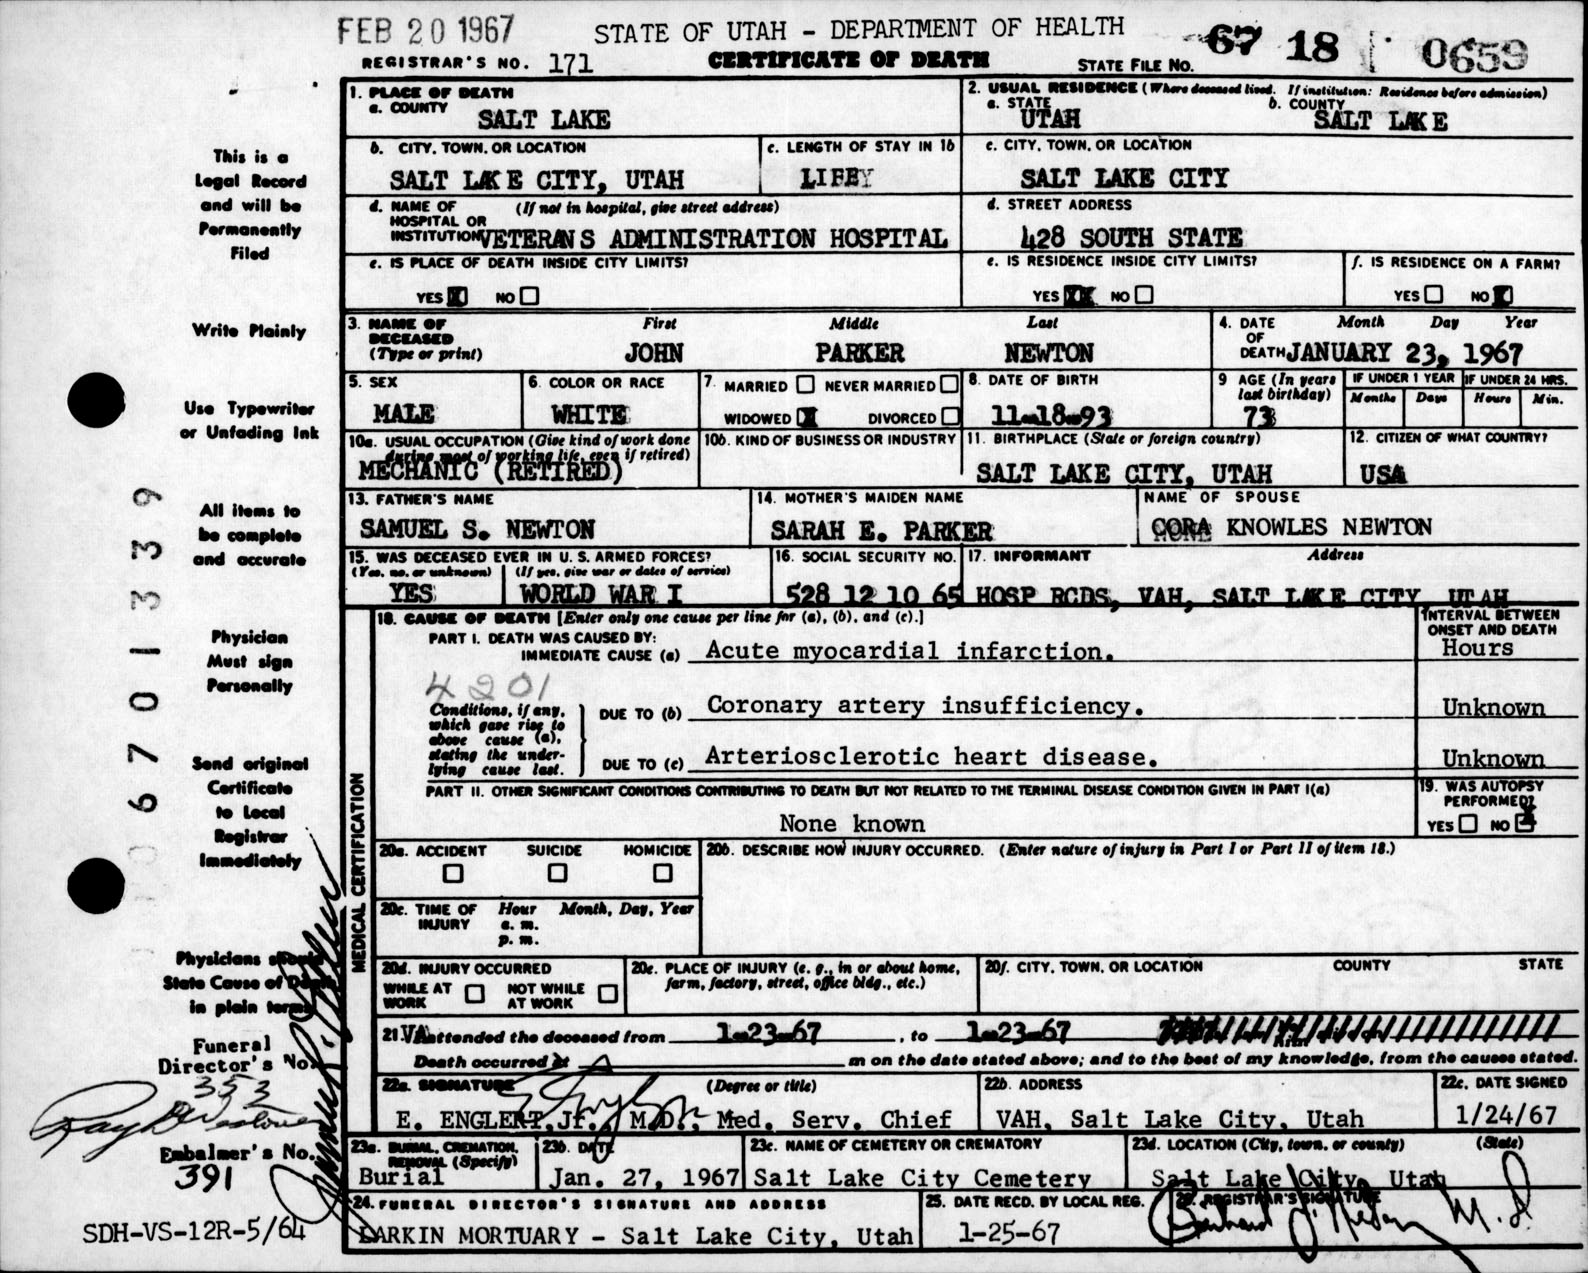 FEB 20 1967
STATE OF UTAH - DEPARTMENT OF HEALTH
67 18 0659
REGISTRAR'S NO. 171
CERTIFICATE OF DEATH
STATE FILE NO.
This is a
Legal Record
and will be
Permanently
Filed
Write Plainly
Use Typewriter
or Unfading Ink
All items to
be complete
and accurate
Physician
Must sign
Personally
Send original
Certificate
to Local
Registrar
Immediately
Physicians should
State Cause of Death
in plain terms
Funeral
Director's No.
353
Embalmer's No.
391
SDH-VS-12R-5/64
0 6 7 0 1 3 3 9
1. PLACE OF DEATH
a. COUNTY
SALT LAKE
2. USUAL RESIDENCE (Where deceased lived. If institution: Residence before admission)
a. STATE
UTAH
b. COUNTY
SALT LAKE
b. CITY, TOWN, OR LOCATION
SALT LAKE CITY, UTAH
c. LENGTH OF STAY IN 1b
c. CITY, TOWN, OR LOCATION
SALT LAKE CITY
d. NAME OF (If not in hospital, give street address)
HOSPITAL OR
INSTITUTION VETERANS ADMINISTRATION HOSPITAL
d. STREET ADDRESS
428 SOUTH STATE
e. IS PLACE OF DEATH INSIDE CITY LIMITS?
YES X NO
e. IS RESIDENCE INSIDE CITY LIMITS?
YES XX NO
f. IS RESIDENCE ON A FARM?
YES NO X
3. NAME OF
DECEASED
(Type or print)
First Middle Last
JOHN PARKER NEWTON
4. DATE
OF
DEATH
Month Day Year
JANUARY 23, 1967
5. SEX
MALE
6. COLOR OR RACE
WHITE
7. MARRIED NEVER MARRIED
WIDOWED X DIVORCED
8. DATE OF BIRTH
11-18-93
9 AGE (In years
last birthday)
73
IF UNDER 1 YEAR
Months Days
IF UNDER 24 HRS.
Hours Min.
10a. USUAL OCCUPATION (Give kind of work done
during most of working life, even if retired)
MECHANIC (RETIRED)
10b. KIND OF BUSINESS OR INDUSTRY
11. BIRTHPLACE (State or foreign country)
SALT LAKE CITY, UTAH
12. CITIZEN OF WHAT COUNTRY?
USA
13. FATHER'S NAME
SAMUEL S. NEWTON
14. MOTHER'S MAIDEN NAME
SARAH E. PARKER
NAME OF SPOUSE
CORA KNOWLES NEWTON
15. WAS DECEASED EVER IN U. S. ARMED FORCES?
(Yes, no, or unknown) (If yes, give war or dates of service)
YES WORLD WAR I
16. SOCIAL SECURITY NO.
528 12 10 65
17. INFORMANT Address
HOSP RCDS, VAH, SALT LAKE CITY UTAH
MEDICAL CERTIFICATION
18. CAUSE OF DEATH [Enter only one cause per line for (a), (b), and (c).]
PART I. DEATH WAS CAUSED BY:
IMMEDIATE CAUSE (a) Acute myocardial infarction.
INTERVAL BETWEEN
ONSET AND DEATH
Hours
4201
Conditions, if any,
which gave rise to
above cause (a),
stating the under-
lying cause last.
DUE TO (b) Coronary artery insufficiency.
Unknown
DUE TO (c) Arteriosclerotic heart disease.
Unknown
PART II. OTHER SIGNIFICANT CONDITIONS CONTRIBUTING TO DEATH BUT NOT RELATED TO THE TERMINAL DISEASE CONDITION GIVEN IN PART I(a)
None known
19. WAS AUTOPSY
PERFORMED?
YES NO X
20a. ACCIDENT SUICIDE HOMICIDE
20b. DESCRIBE HOW INJURY OCCURRED. (Enter nature of injury in Part I or Part II of item 18.)
20c. TIME OF
INJURY
Hour Month, Day, Year
a. m.
p. m.
20d. INJURY OCCURRED
WHILE AT
WORK
NOT WHILE
AT WORK
20e. PLACE OF INJURY (e. g., in or about home,
farm, factory, street, office bldg., etc.)
20f. CITY, TOWN, OR LOCATION COUNTY STATE
21. VA attended the deceased from 1-23-67, to 1-23-67
Death occurred at m on the date stated above; and to the best of my knowledge, from the causes stated.
22a. SIGNATURE (Degree or title)
E. ENGLERT, Jr., M.D., Med. Serv. Chief
22b. ADDRESS
VAH, Salt Lake City, Utah
22c. DATE SIGNED
1/24/67
23a. BURIAL, CREMATION,
REMOVAL (Specify)
Burial
23b. DATE
Jan. 27, 1967
23c. NAME OF CEMETERY OR CREMATORY
Salt Lake City Cemetery
23d. LOCATION (City, town, or county) (State)
Salt Lake City, Utah
24. FUNERAL DIRECTOR'S SIGNATURE AND ADDRESS
LARKIN MORTUARY - Salt Lake City, Utah
25. DATE RECD. BY LOCAL REG.
1-25-67
26. REGISTRAR'S SIGNATURE
M.D.